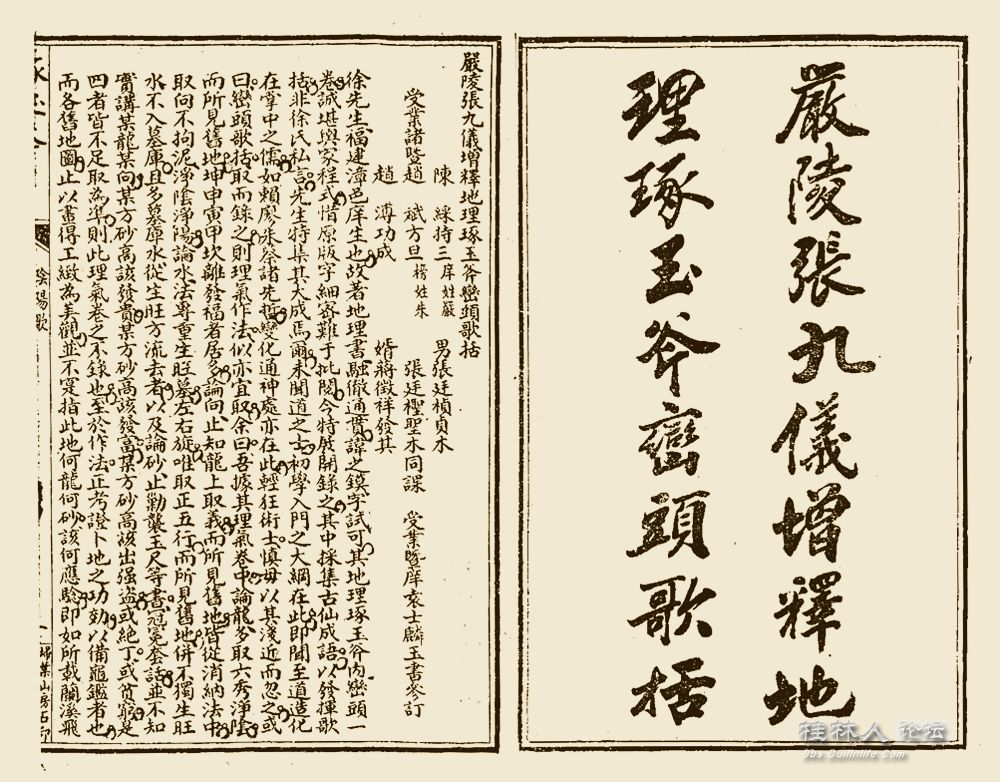 嚴陵張九儀增釋地
理琢玉斧巒頭歌括
嚴陵張九儀增釋地理琢玉斧巒頭歌括
陳 綵持三庠姓嚴 男張廷楨貞木
受業諸暨趙 斌方旦榜姓朱 張廷櫺聖木同課 受業暨庠袁士麟玉書參訂
趙 溥功成 婿蔣徵祥發其
徐先生福建漳邑庠生也故著地理書融徹通貫諱之鏌字試可其地理琢玉斧內巒頭一
卷誠堪輿家程式惜原版字細密難于批閱今特展開錄之其中採集古仙成語以發揮歌
括非徐氏私言先生特集其大成焉爾未聞道之士初學入門之大綱在此即聞至道造化
在掌中之儒如賴廖朱蔡諸先哲變化通神處亦在此輕狂術士慎毋以其淺近而忽之或
曰巒頭歌括取而錄之則理氣作法似亦宜取余曰吾據其理氣卷中論龍多取六秀淨陰
而所見舊地坤申寅甲坎離發福者居多論向止知龍上取義而所見舊地皆從消納法中
取向不拘泥淨陰淨陽論水法專重生旺墓左右旋唯取正五行而所見舊地併不獨生旺
水不入墓庫且多墓庫水從生旺方流去者以及論砂止勦襲玉尺等書冠冕套話並不知
實講某龍某向某方砂高該發貴某方砂高該發富某方砂高該出強盜或絕丁或貧窮是
四者皆不足取為準則此理氣卷之不錄也至於作法正考證卜地之功効以備龜鑑者也
而各舊地圖止以畫得工緻為美觀並不寔指此地何龍何砂該何應驗即如所載蘭溪飛
陰陽歌
埽葉山房石印
桂林人论坛
bbs.Guilinlife.com